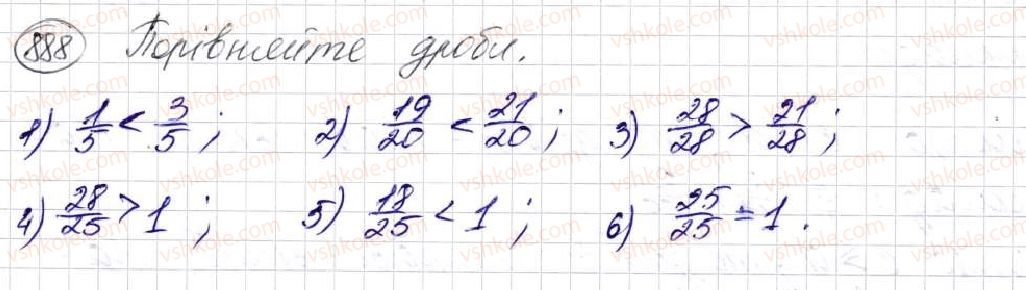 888 Порівняйте дроби.
1) 1/5 < 3/5 ; 2) 19/20 < 21/20 ; 3) 28/28 > 21/28 ;
4) 28/25 > 1 ; 5) 18/25 < 1 ; 6) 25/25 = 1 .
vshkole.com